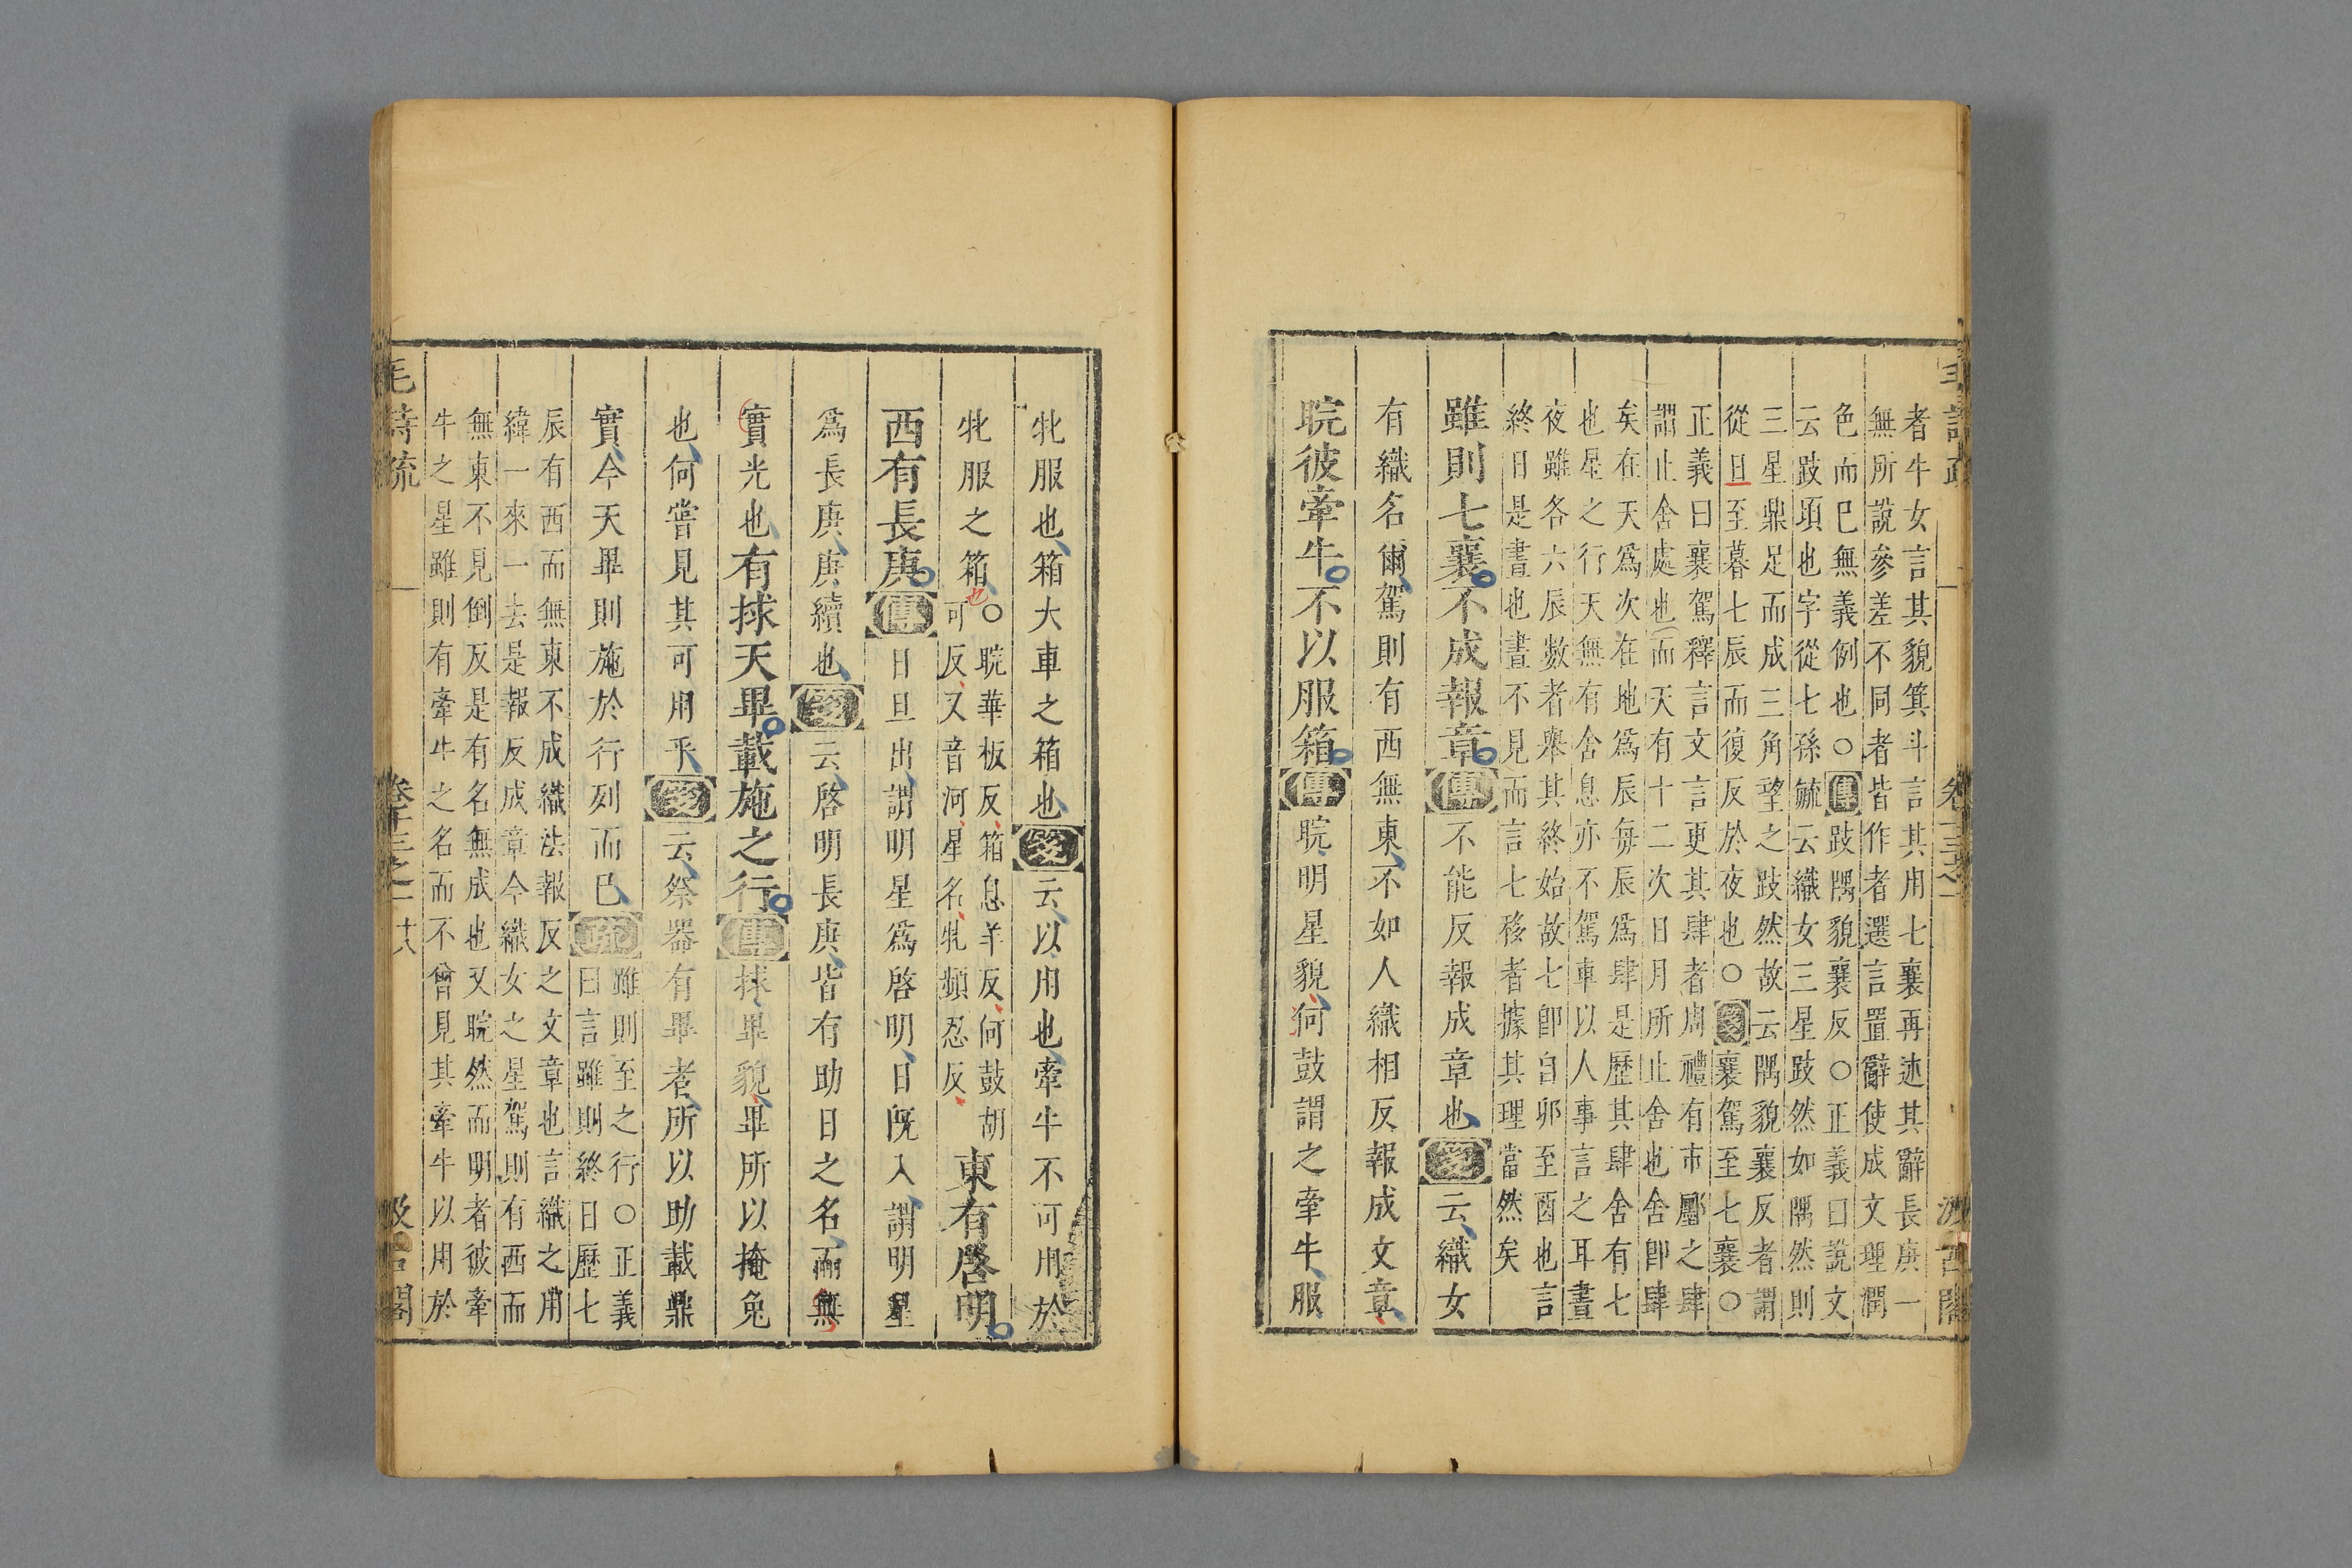 者牛女言其貌箕斗言其用七襄再述其辭長庚一
無所說參差不同者皆作者選言置辭使成文理潤
色而巳無義例也○傳跂隅貌襄反○正義曰說文
云跂頃也字從七孫毓云織女三星跂然如隅然則
三星鼎足而成三角望之跂然故云隅貌襄反者謂
從旦至暮七辰而復反於夜也○箋襄駕至七襄○
正義曰襄駕釋言文言更其肆者周禮有市鄽之肆
謂止舍處也而天有十二次日月所止舍也舍卽肆
矣在天爲次在地爲辰每辰爲肆是歷其肆舍有七
也星之行天無有舍息亦不駕車以人事言之耳晝
夜雖各六辰數者舉其終始故七卽自卯至酉也言
終日是晝也晝不見而言七移者據其理當然矣
雖則七襄不成報章傳不能反報成章也箋云織女
有織名爾駕則有西無東不如人織相反報成文章
睆彼牽牛不以服箱傳睆明星貌何鼓謂之牽牛服
牝服也箱大車之箱也箋云以用也牽牛不可用於
牝服之箱也○睆華板反箱息羊反何鼓胡
可反又音河星名牝頻忍反
東有啓明
西有長庚傳日旦出謂明星爲啓明日旣入謂明星
爲長庚庚續也箋云啓明長庚皆有助日之名而無
實光也有捄天畢載施之行傳捄畢貌畢所以掩兔
也何嘗見其可用乎箋云祭器有畢者所以助載鼎
實今天畢則施於行列而巳疏雖則至之行○正義
曰言雖則終日歷七
辰有西而無東不成織法報反之文章也言織之用
緯一來一去是報反成章今織女之星駕則有西而
無東不見倒反是有名無成也又睆然而明者彼牽
牛之星雖則有牽牛之名而不曾見其牽牛以用於
毛詩疏
卷十三之一
十八
汲古閣